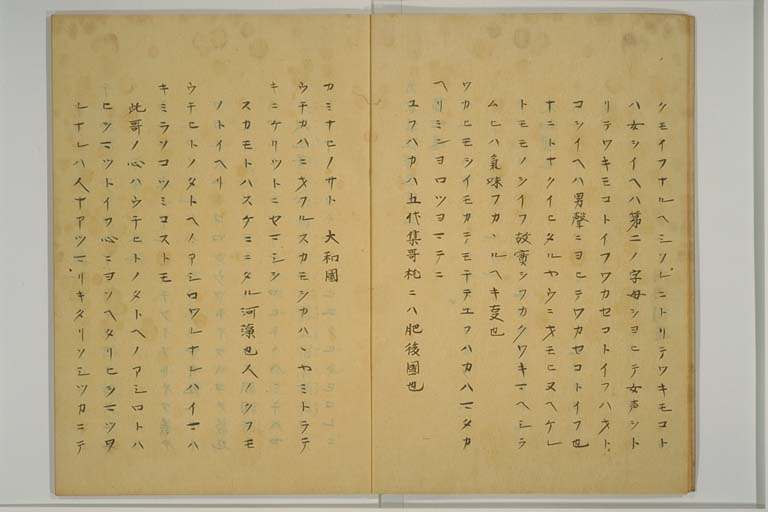 クモイフナルヘシソレニトリテワキモコト
ハ女シイヘハ第二ノ字母シヨヒテ女声シト
リテワキモコトイフワカセコトイフハヲト
コシイヘハ男聲ニヨヒテワカセコトイフ也
ナニトナクイヒタルヤウニキモヒヌヘケレ
トモモノシイフ故實シワカクワキマヘシラ
ムヒハ氣味フカヽルヘキ夏也
ワカヒモシイモカテモテテユフハカハマタカ
ヘリミンヨロツヨマテニ
ユフハカハ五代集哥枕ニハ肥後國也
カミナヒノサト 大和國
ウチカハニヲフルスカモシカハハヤミトラテ
キニケリツトニセマシシ
スカモトハスケニニタル河藻也人ノツフモ
ノトイヘリ
ウチヒトノタトヘノアシロワレナレハイマハ
キミラソコツミコストモ
此哥ノ心ハウチヒトノタトヘノアシロトハ
ヒシマツトイフ心ニヨソヘタリヒシマツワ
レナレハ人ナアツマリキタリソシツカニテ